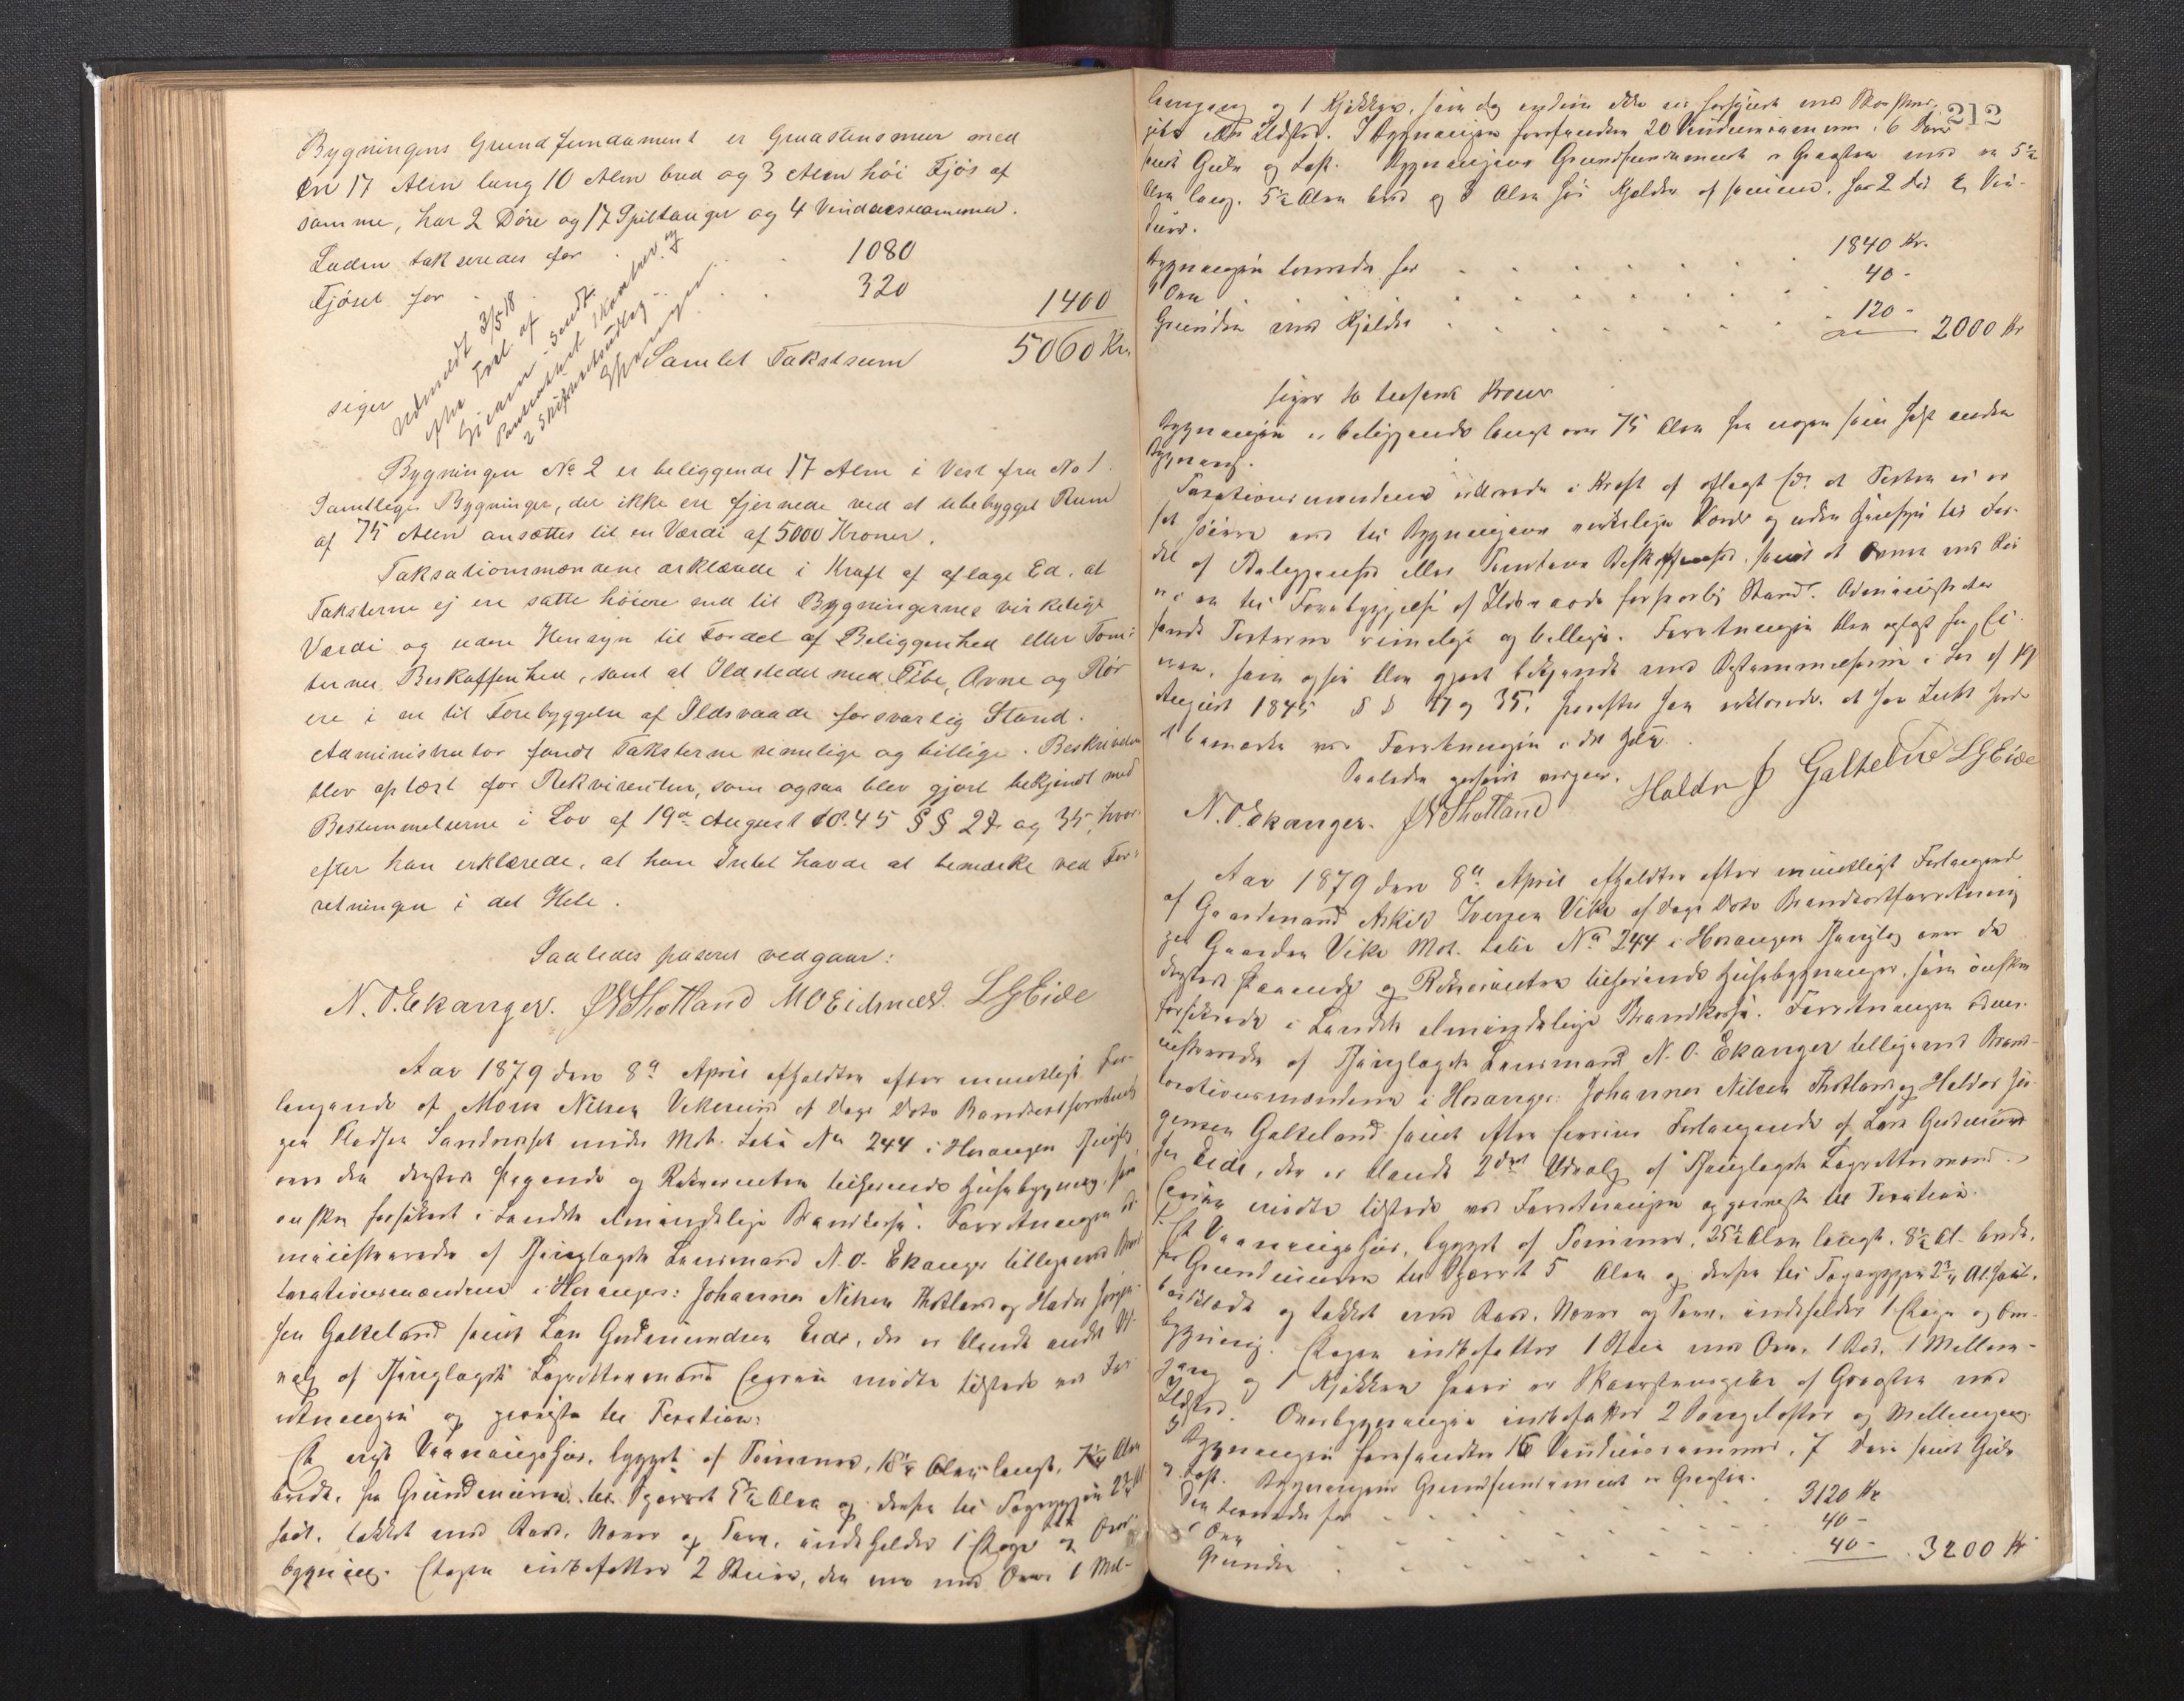 Bygningens Grundfundament er Graastensmur med
en 17 Alen lang 10 Alen bred og 3 Alen höi Fjös af
samme, har 2 Döre og 17 Spiltauger og 4 Vinduesrammer.
Laden takseredes for . . . 1080
Fjöset for . . . 320
1400
Samlet Takstsum 5060 Kr.
siger
Udmeldt 3/5 18
efter Forl. af
Eieren - sendt
Panteattest &
2 Skiftesudlæg
Ekanger
Bygningen No 2 er beliggende 17 Alen i Vest fra No 1.
Samtlige Bygninger, der ikke ere fjernede ved et ubebygget Rum
af 75 Alen ansættes til en Værdi af 5000 Kroner.
Taksationsmændene erklærede i Kraft af aflagt Ed, at
Taksterne ej ere satte höiere end til Bygningernes virkelige
Værdi og uden Hensyn til Fordel af Beliggenhed eller Tom-
ternes Beskaffenhed, samt at Ildstedet med Pibe, Ovne og Rör
ere i en til Forebyggelse af Ildsvaade forsvarlig Stand.
Administrator fandt Taksterne rimelige og billige. Beskrivelsen
blev oplæst for Rekvirenten, som ogsaa blev gjort bekjendt med
Bestemmelserne i Lov af 19de August 1845 §§ 27 og 35, hvor-
efter han erklærede, at han Intet havde at bemærke ved For-
retningen i det Hele.
Saaledes passeret vedgaar:
N. O. Ekanger. JN Thotland M O Eidsnes. L G Eide
Aar 1879 den 8de April afholdtes efter mundtligt For-
langende af Mons Nilsen Vikenes af Dags Dato Brandtaxtforretning
paa Pladsen Sandneset under Mat. Løbe No 244 i Hosangers Thinglag,
over den dersteds staaende og Rekvirenten tilhørende Huusbygning, som
ønskes forsikret i Landets almindelige Brandkasse. Forretningen ad-
ministreredes af Thinglagets Lensmand N. O. Ekanger tilligemed Brand-
taxationsmændene i Hosanger: Johannes Nilsen Thotland og Haldor Jørgen-
sen Galteland samt Lars Gudmundsen Eide, der er blandt andet Ud-
valg af Thinglagets Lagrettesmænd. Eieren mødte tilstede ved For-
retningen og paaviste til Taxation:
Et nyt Vaaningshus, bygget af Tømmer, 18 1/4 Alen langt, 7 1/4 Alen
bredt, fra Grundmuren til Gesimset 5 1/4 Alen og derfra til Tagryggen 2 3/4 Al
høit, tækket med Bord, Næver og Torv, indeholder 1 Etage og Over-
bygning. Etagen indbefatter 2 Stuer, den ene med Ovn, 1 Mel-
212
lemgang og 1 Kjøkken, som dog endnu ikke er forsynet med Skorstens-
pibe eller Ildsted. I Bygningen forefindes 20 Vinduesrammer, 6 Døre
samt Gulv og Loft. Bygningens Grundfundament er Graasten med en 5 1/2
Alen lang, 5 1/2 Alen bred og 3 Alen høi Kjelder af samme, har 2 Døre & Vin-
duer.
Bygningen taxeredes for . . . 1840 Kr.
1 Ovn . . . 40 -
Grunden med Kjelder . . . 120 -
2000 Kr
siger to tusende Kroner
Bygningen er beliggende langt over 75 Alen fra nogen som helst anden
Bygning.
Taxationsmændene erklærede i Kraft af aflagt Ed, at Taxten ei er
sat høiere end til Bygningens virkelige Værdi og uden Hensyn til For-
del af Beliggenhed eller Tomtens Beskaffenhed, samt at Ovnen med Rør
er i en til Forebyggelse af Ildsvaade forsvarlig Stand. Administrator
fandt Taxterne rimelige og billige. Forretningen blev oplæst for Ei-
eren, som ogsaa blev gjort bekjendt med Bestemmelserne i Lov af 19
August 1845 §§ 27 og 35, hvorefter han erklærede, at han Intet havde
at bemærke ved Forretningen i det Hele.
Saaledes passeret vedgaar.
N. O. Ekanger. JN Thotland Haldor J Galteland LG Eide
Aar 1879 den 8de April afholdtes efter mundtligt Forlangende
af Gaardmand Askild Iversen Vike af Dags Dato Brandtaxtforretning
paa Gaarden Vike Mat. Løbe No 244 i Hosangers Thinglag over de
dersteds staaende og Rekvirenten tilhørende Huusbygninger, som ønskes
forsikrede i Landets almindelige Brandkasse. Forretningen admi-
nistreredes af Thinglagets Lensmand N. O. Ekanger tilligemed Brand-
taxationsmændene i Hosanger: Johannes Nilsen Thotland og Haldor Jør-
gensen Galteland samt efter Eierens Forlangende af Lars Gudmund-
sen Eide, der er blandt 2det Udvalg af Thinglagets Lagrettesmænd.
Eieren mødte tilstede ved Forretningen og paaviste til Taxation.
1. Et Vaaningshus, bygget af Tømmer, 25 1/2 Alen langt, 8 1/2 Al. bredt,
fra Grundmuren til Gesimset 5 Alen og derfra til Tagryggen 2 3/4 Al. høit,
bordklædt og tækket med Bord, Næver og Torv, indeholder 1 Etage og Over-
bygning. Etagen indbefatter 1 Stue med Ovn, 1 Bod, 1 Mellem-
gang og 1 Kjøkken hvori er Skorstenspibe af Graasten med
Ildsted. Overbygningen indbefatter 2 Sengelofter og Mellemgang.
I Bygningen forefindes 16 Vinduesrammer, 7 Døre samt Gulv
og Loft. Bygningens Grundfundament er Graasten.
Den taxeredes for . . . 3120 Kr
1 Ovn . . . 40 -
Grunden . . . 40 - 3200 Kr